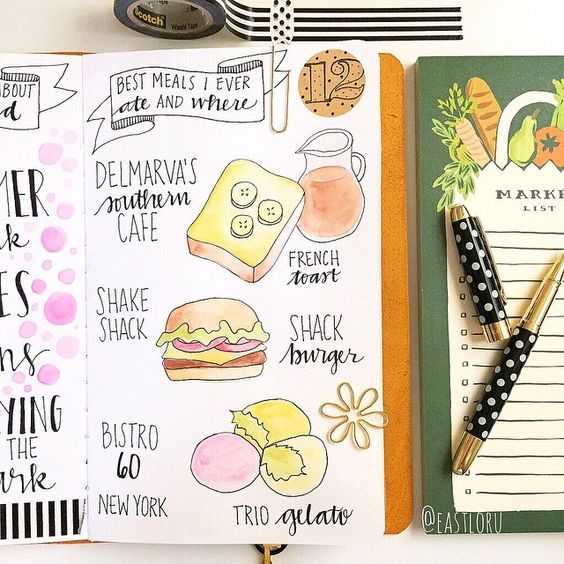 Scotch
Washi Tape
ABOUT
d
BEST MEALS I EVER
ate AND where
12
MER
DELMARVA'S
southern
CAFE
FRENCH
toast
SHAKE
SHACK
SHACK
burger
YING
THE
ark
BISTRO
60
NEW YORK
TRIO gelato
MARKE
LIST
@EASTLORU